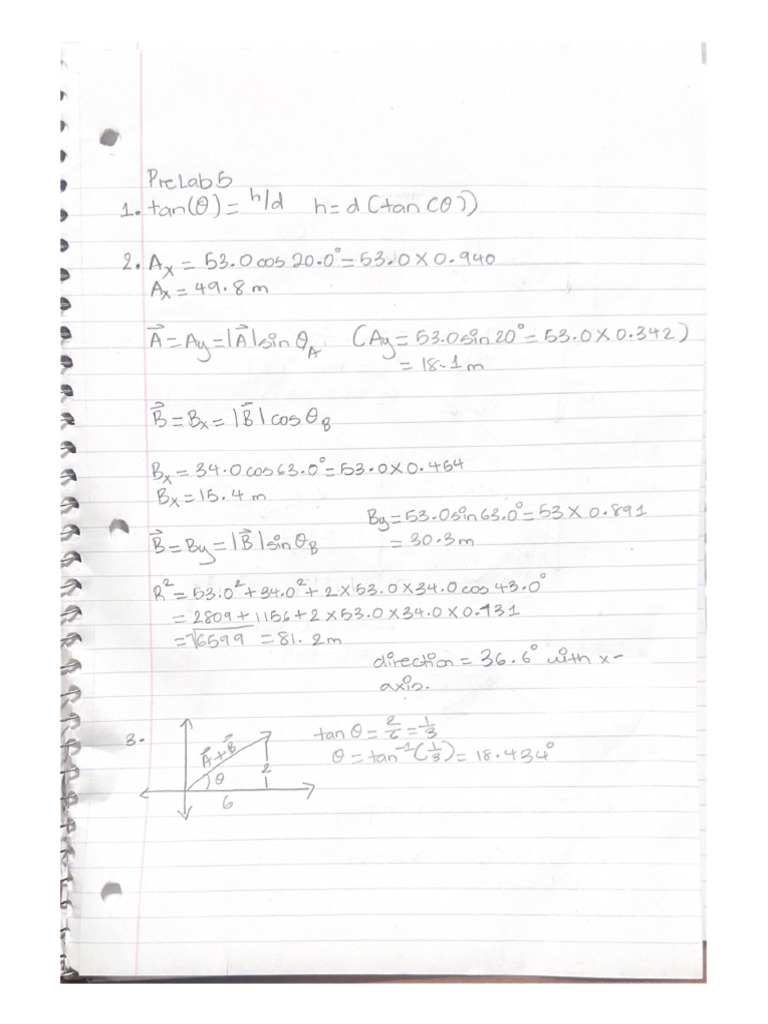 PreLab 5
1. tan(θ) = h/d h = d (tan(θ))
2. Ax = 53.0 cos 20.0° = 53.0 X 0.940
Ax = 49.8 m
A⃗ = Ay = |A⃗| sin θA (Ay = 53.0 sin 20° = 53.0 X 0.342)
= 18.1 m
B⃗ = Bx = |B⃗| cos θB
Bx = 34.0 cos 63.0° = 53.0 X 0.454
Bx = 15.4 m
By = 53.0 sin 63.0° = 53 X 0.891
B⃗ = By = |B⃗| sin θB = 30.3 m
R² = 53.0² + 34.0² + 2 X 53.0 X 34.0 cos 43.0°
= 2809 + 1156 + 2 X 53.0 X 34.0 X 0.731
= √6599 = 81.2 m
direction = 36.6° with x-
axis.
3. A⃗ + B⃗ θ 2 6
tan θ = 2/6 = 1/3
θ = tan⁻¹(1/3) = 18.434°